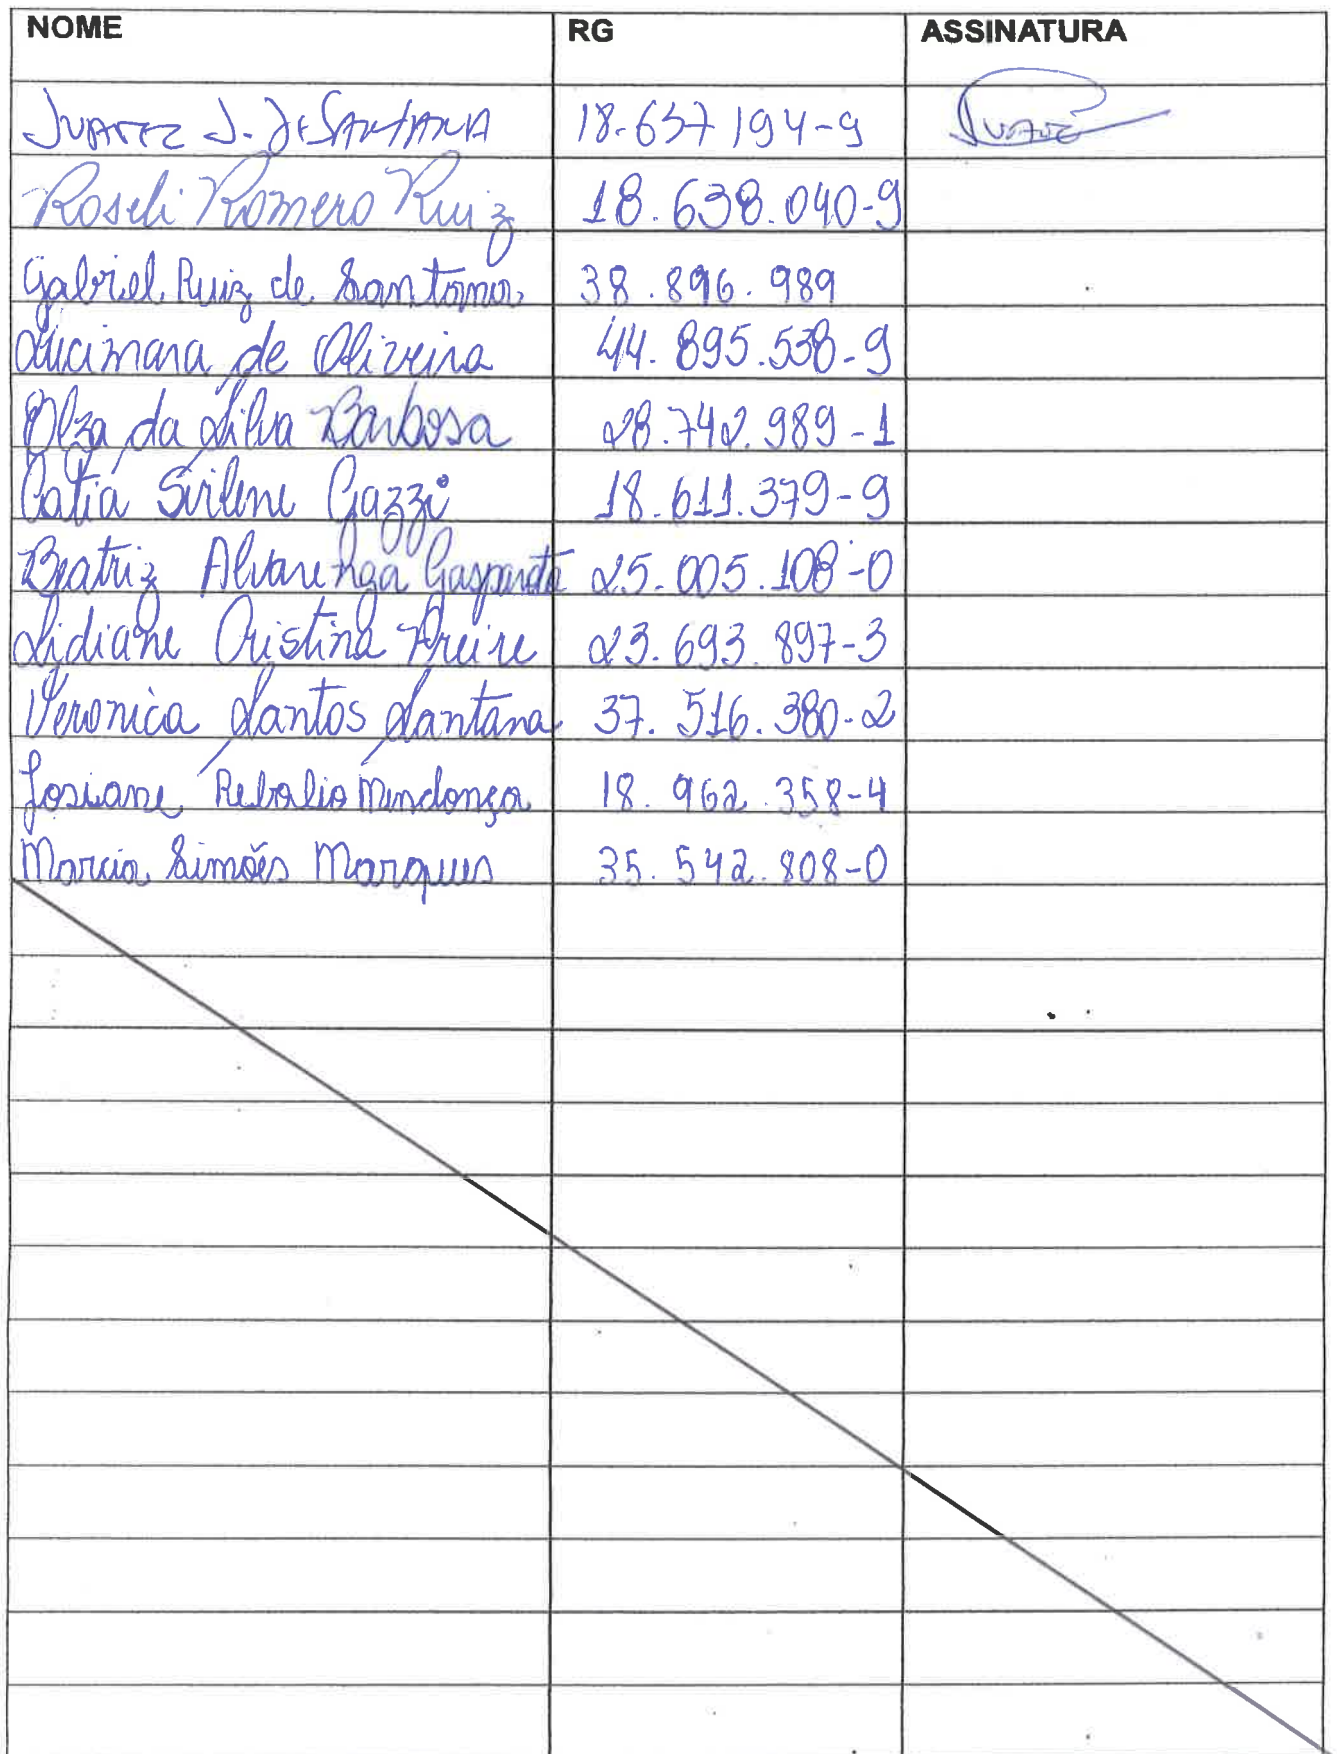 NOME RG ASSINATURA
Juarez J. de Santana 18.637194-9 Juarez
Roseli Romero Ruiz 18.638.040-9
Gabriel Ruiz de Santana 38.896.989
Lucimara de Oliveira 44.895.538-9
Olza da Silva Barbosa 28.742.989-1
Catia Sirlene Gazzi 18.611.379-9
Beatriz Alvarenga Gasparoto 25.005.108-0
Lidiane Cristina Freire 23.693.897-3
Veronica Santos Santana 37.516.380-2
Josiane Rebolio Mendonça 18.962.358-4
Marcia Simões Marques 35.542.808-0